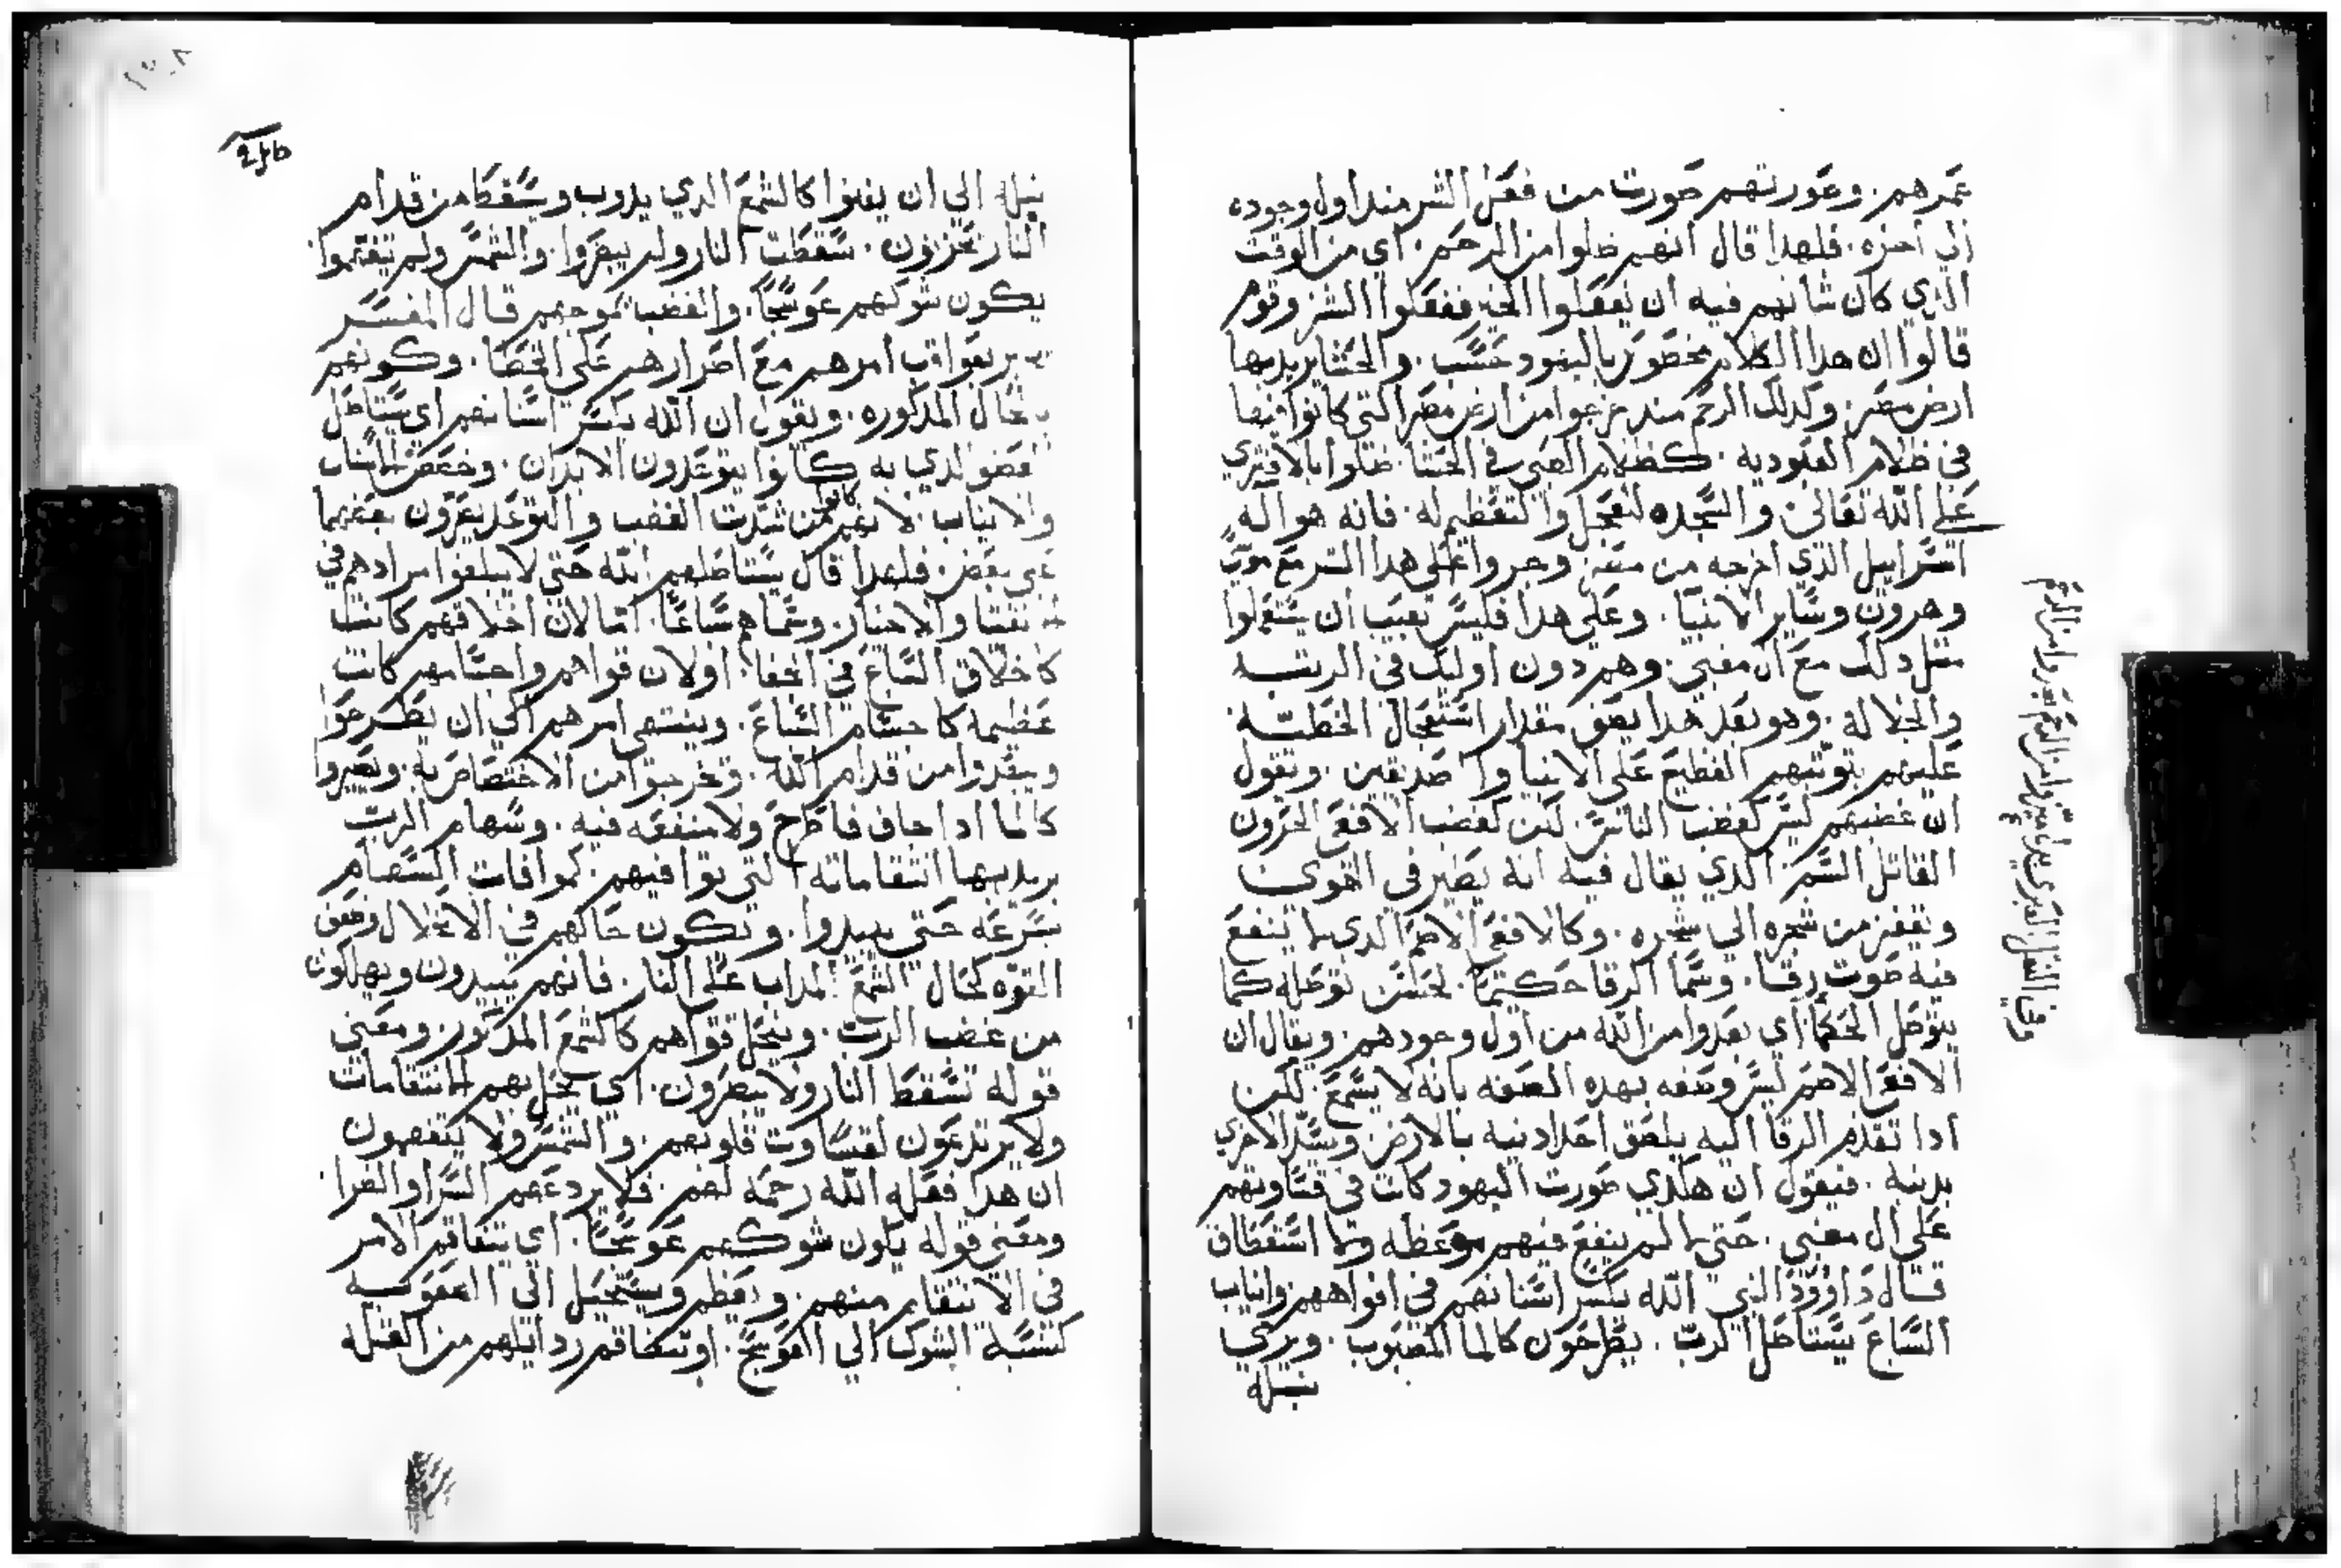 عمرهم. وعورتهم صورت من فعل الشر منذ اول وجوده
الي اخره. فلهذا قال انهم ضلوا من الرحم. اي من الوقت
الذي كان شانهم فيه ان يفعلوا الخير ففعلوا الشر وقوم
قالوا ان هدا الكلام مخصوص باليهود حسب. والحشا يريد بها
ارض مصر. وكدلك الرحم مند خرجوا من ارض مصر التي كانوا فيها
في ظلام العبوديه. كظلام الصبي في الحشا. ضلوا بالافتري
علي الله تعالي. والسجده للعجل والتعظيم له. فانه هو اله
اسراييل الذي اخرجه من مصر. وجروا علي هدا الشر مع موسي
وهرون وساير الانبيا. وعلي هدا فليس بعجب ان يستعملوا
مثل دلك مع ال معبي. وهم دون اوليك في الرتبه
والجلاله. وهو بعد هدا يصف مقدار استعجال الخطيه
عليهم بتوثبهم الفظيع علي الانبيا والصديقين. ويقول
ان غضبهم ليس كغضب الناس. لكن كغضب الافعي الحرون
القاتل السم الذي يقال فيه انه يطير في الهوي
ويقفز من شجره الي شجره. وكالافعي الاصم الدي ما ينفع
فيه صوت رقا. وسما الرقا حكيما. لحسن توصله كما
يتوصل الحكما اي بعدوا من الله من اول وجودهم. ويقال ان
الافعي الاصم ليس وصفه بهده الصفه بانه لا يسمع. لكن
ادا تقدم الرقا اليه يلصق احد ادنيه بالارض ويسد الاخري
بدنبه. فيقول ان هكدي صورت اليهود كانت في قساوتهم
علي ال معبي. حتي ما لم ينفع فيهم موعظه ولا استعطاف
قال داوود النبي الله يكسر اسنانهم في افواههم وانياب
السباع يستاصل الرب. يطرحون كالما المصبوب. ويرمي
نبله
وفي النقل العبري
نبله الي ان يفنوا كالشمع الدي يدوب ويسقط من قدام
النار يخزون. سقطت النار ولم يبصروا. والشمس ولم يتفهموا
يكون شوكهم عوسجا. والغضب موجهم قال المفسر
بعواقب امرهم مع اصرارهم علي الخطا. وكونهم
بالحال المدكوره. ويقول ان الله يكسر اسنانهم اي يستاصل
العضو الدي به كانوا يتوعدون الابدان. وخصص الاسنان
والانياب. لانهم كانوا من شدت الغضب والتوعد يصرون بعضهما
علي بعض. فلهدا قال يستاصلهم الله حتي لا يبلغوا مرادهم في
والاخيار. وسماهم سباعا. اما لان اخلاقهم كانت
كاخلاق السباع في الجفا. او لان قواهم واجسامهم كانت
عظيمه كاجسام السباع. وينتهي امرهم الي ان يطرحوا
ويبعدوا من قدام الله. ويخرجوا من الاختصاص به. ويصيروا
كالما ادا جاف فاطرح ولا منفعه فيه. وسهام الرب
يريد بها انتقاماته التي توافيهم. كموافات السهام
بسرعه حتي يبيدوا. ويكون حالهم في الانحلال وضعف
القوه كحال الشمع المداب علي النار. فانهم يبيدون ويهلكون
من غضب الرب. وينحل قواهم كالشمع المدكور. ومعني
قوله تسقط النار ولا يبصرون. اي تحل بهم الانتقامات
ولا يرتدعون لقساوت قلوبهم. والشمس ولا يتفهمون
ان هدا فعله الله رحمه لهم. فلا يردعهم السرا والضرا
ومعني قوله يكون شوكهم عوسجا. اي يتفاقم الامر
في الانتقام منهم. ويعظم ويستحيل الي الصعوبه
كنسبة الشوك الي العوسج. او تتفاقم ردايلهم من القتل